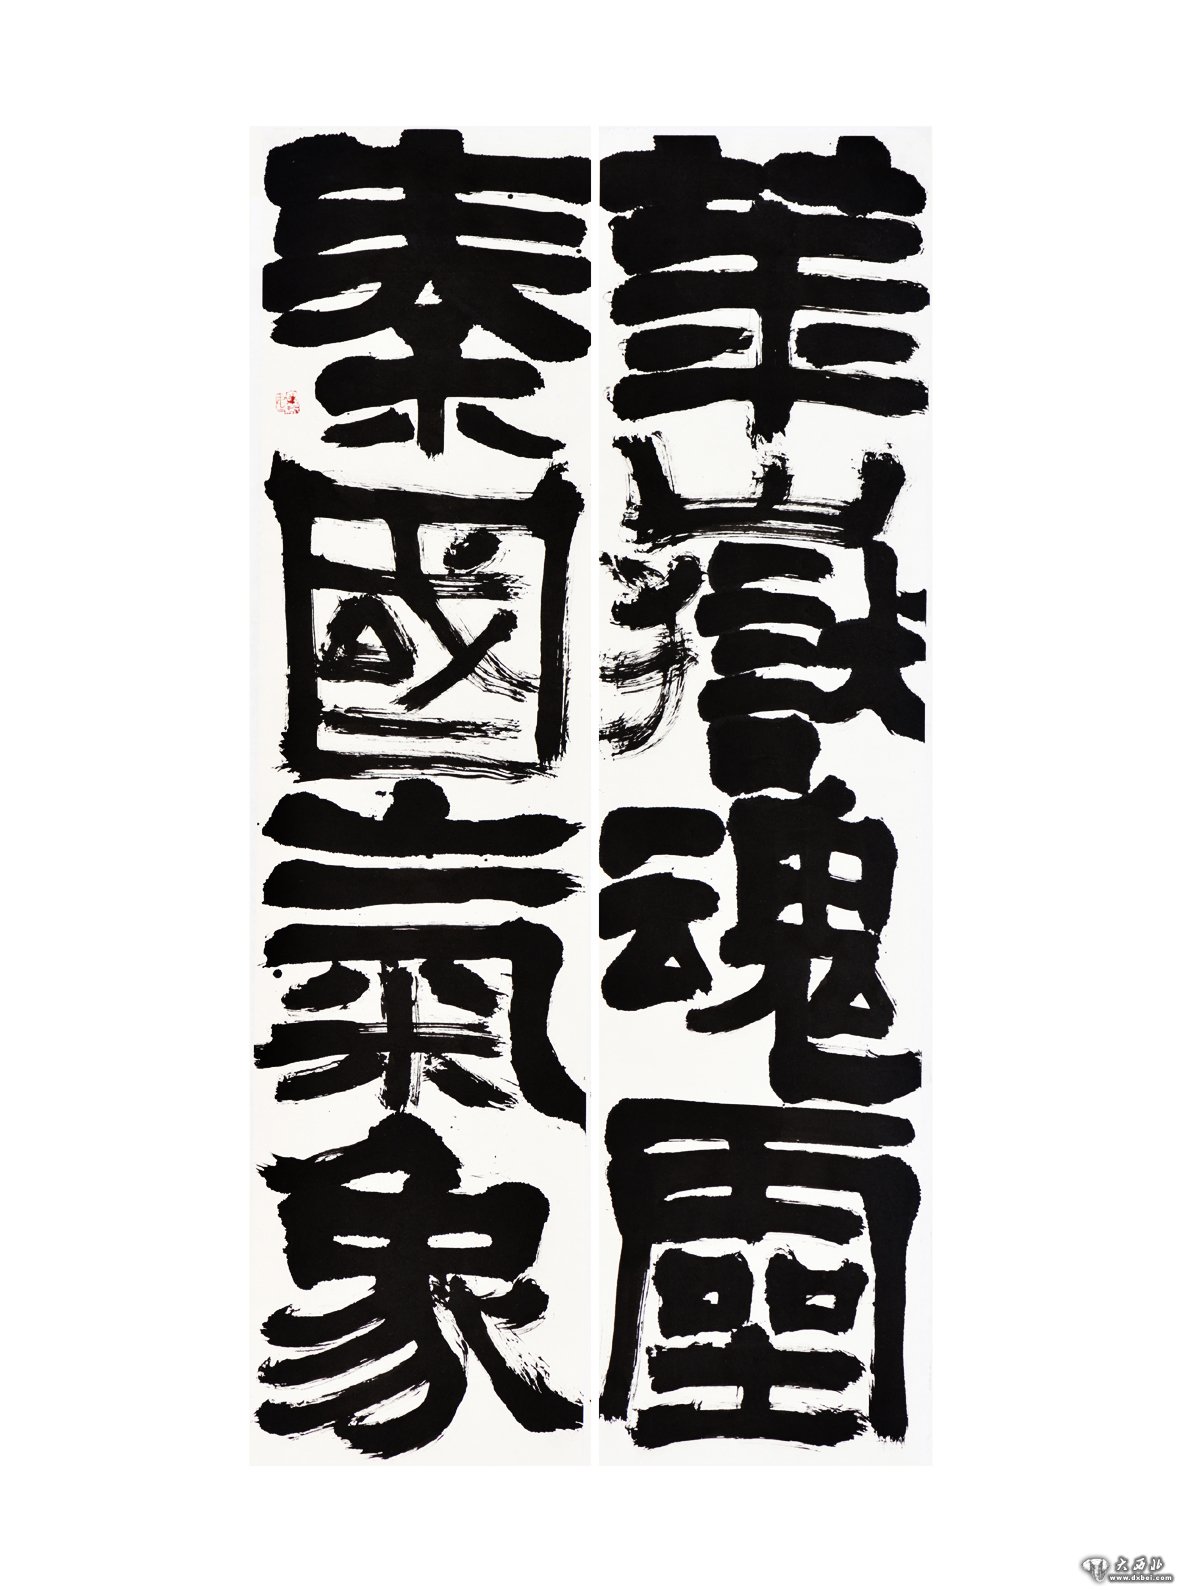 華嶽魂靈
秦國氣象
大西北
www.dxbei.com